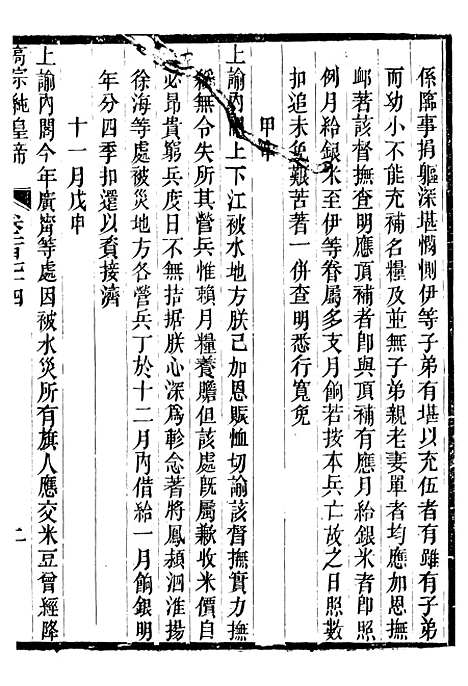 係臨事捐軀深堪憫惻伊等子弟有堪以充伍者有雖有子弟
而幼小不能充補名糧及並無子弟親老妻單者均應加恩撫
卹著該督撫查明應頂補者即與頂補有應月給銀米者即照
例月給銀米至伊等眷屬多支月餉若按本兵亡故之日照數
扣追未免艱苦著一併查明悉行寬免
甲申
上諭內閣上下江被水地方朕已加恩賑恤切諭該督撫實力撫
綏無令失所其營兵惟賴月糧養贍但該處既屬歉收米價自
必昂貴窮兵度日不無拮据朕心深為軫念著將鳳潁泗淮揚
徐海等處被災地方各營兵丁於十二月內借給一月餉銀明
年分四季扣還以資接濟
十一月戊申
上諭內閣今年廣寧等處因被水災所有旗人應交米豆曾經降
高宗純皇帝
卷二百三四
二